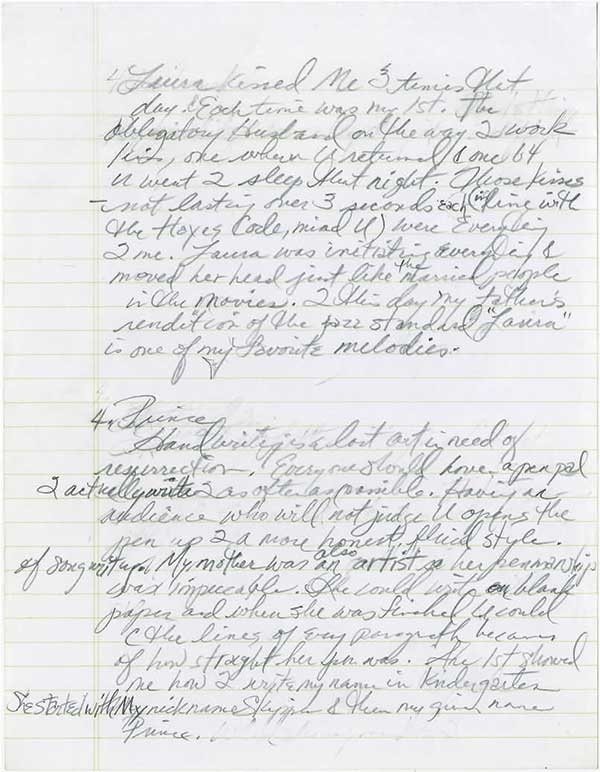 4. Laura kissed Me 3 times that
day & Each time was my 1st. The
obligatory Husband on the way 2 work
kiss, one when U returned & one b4
U went 2 sleep that night. Those kisses
- not lasting over 3 seconds each (in line with
the Hayes Code, mind U) were Everything
2 me. Laura was initiating Everything &
moved her head just like the married people
in the movies. 2 this day my father's
rendition of the jazz standard "Laura"
is one of my favorite melodies.
4. Prince
Handwriting is a lost art in need of
resurrection. Everyone should have a pen pal
2 actually write 2 as often as possible. Having an
audience who will not judge U opens the
pen up 2 a more honest, fluid style.
of songwriting. My mother was also an artist so her penmanship
was impeccable. She could write on blank
paper and when she was finished U could
C the lines of every paragraph because
of how straight her pen was. She 1st showed
me how 2 write my name in Kindergarten
She started with My nickname Skipper & then my given name
Prince.